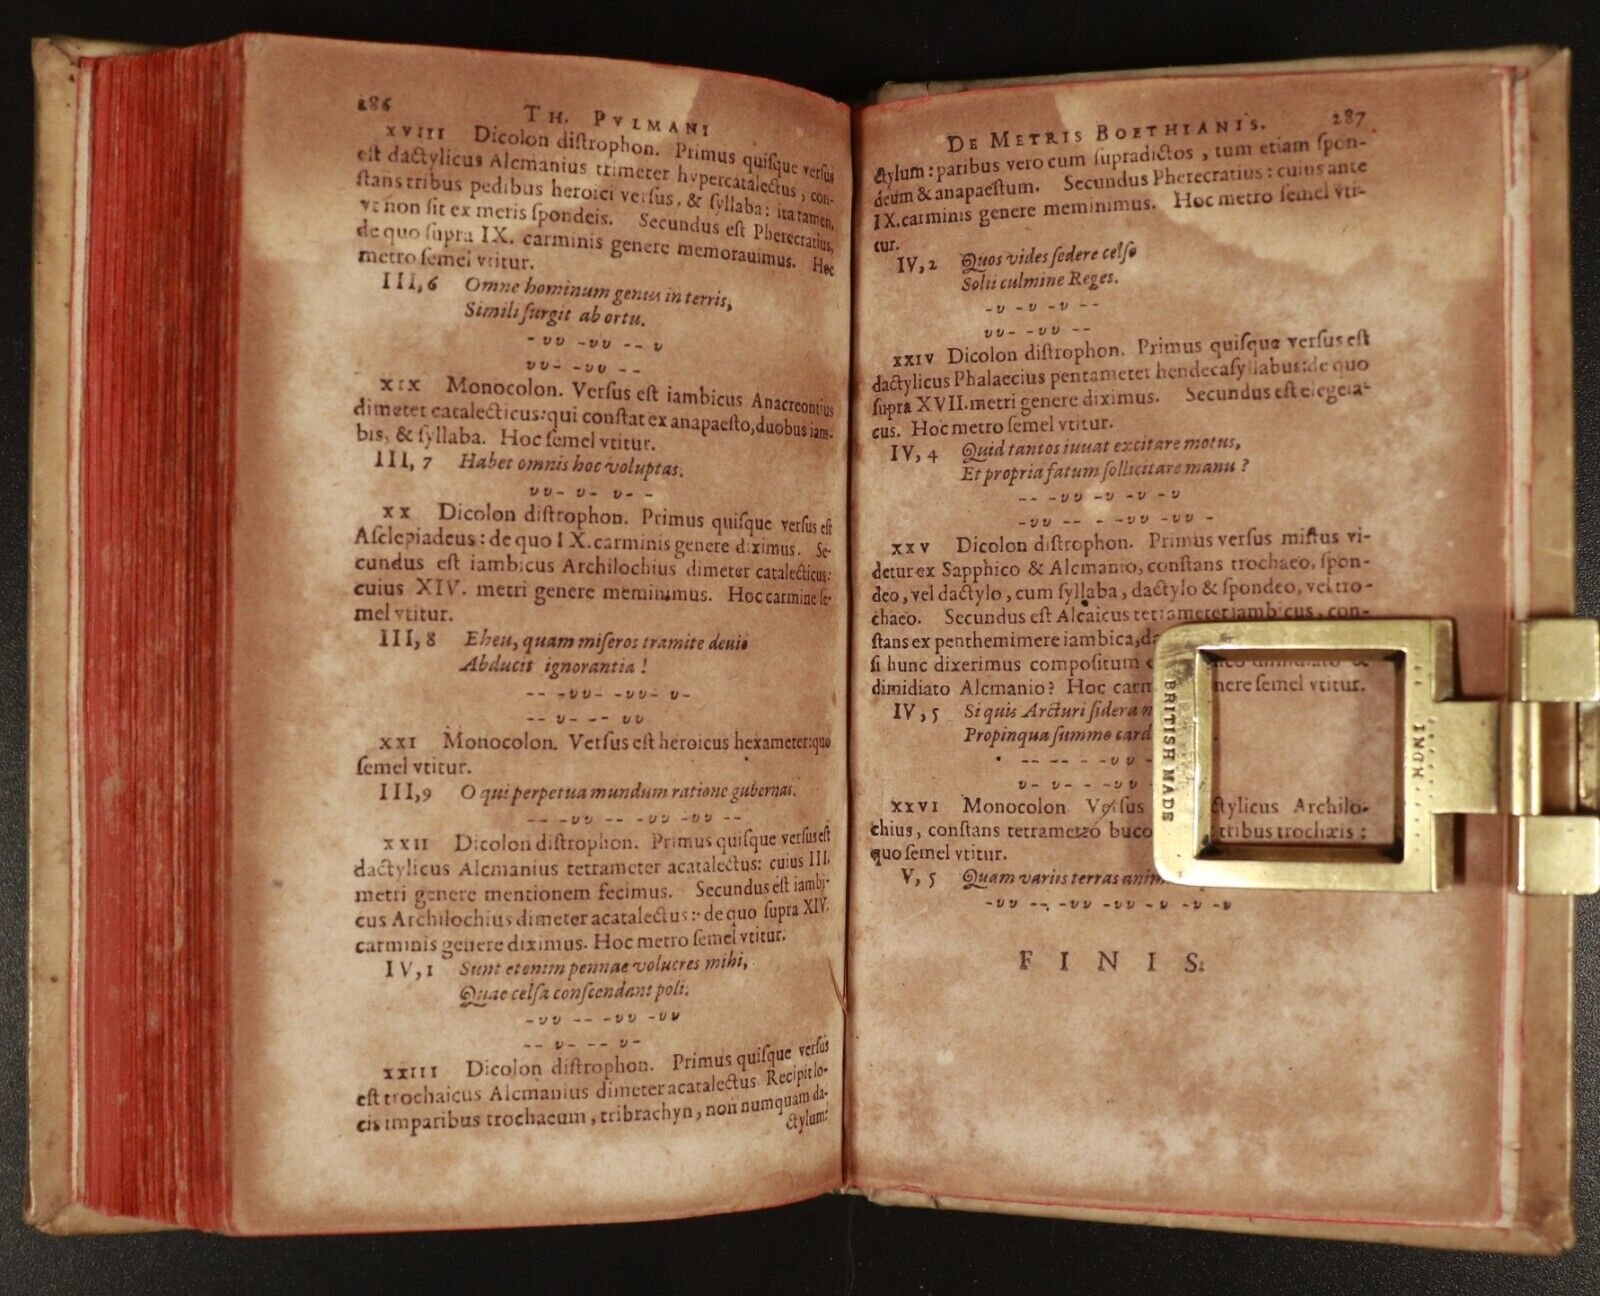 286
TH. PVLMANI
XVIII Dicolon diſtrophon. Primus quiſque verſus
eſt dactylicus Alcmanius trimeter hypercatalectus, con-
ſtans tribus pedibus heroici verſus, & ſyllaba: ita tamen,
vt non ſit ex meris ſpondeis. Secundus eſt Pherecratius,
de quo ſupra IX. carminis genere memorauimus. Hoc
metro ſemel vtitur.
III, 6 Omne hominum genus in terris,
Simili ſurgit ab ortu.
- υυ -υυ -- υ
υυ- -υυ --
XIX Monocolon. Verſus eſt iambicus Anacreontius
dimeter catalecticus: qui conſtat ex anapaeſto, duobus iam-
bis, & ſyllaba. Hoc ſemel vtitur.
III, 7 Habet omnis hoc voluptas.
υυ- υ- υ- -
XX Dicolon diſtrophon. Primus quiſque verſus eſt
Aſclepiadeus: de quo IX. carminis genere diximus. Se-
cundus eſt iambicus Archilochius dimeter catalecticus:
cuius XIV. metri genere meminimus. Hoc carmine ſe-
mel vtitur.
III, 8 Eheu, quam miſeros tramite deuio
Abducit ignorantia!
-- -υυ- -υυ- υ-
-- υ- -- υυ
XXI Monocolon. Verſus eſt heroicus hexameter: quo
ſemel vtitur.
III, 9 O qui perpetua mundum ratione gubernas.
-- -υυ -- -υυ -υυ --
XXII Dicolon diſtrophon. Primus quiſque verſus eſt
dactylicus Alcmanius tetrameter acatalectus: cuius III.
metri genere mentionem fecimus. Secundus eſt iambi-
cus Archilochius dimeter acatalectus: de quo ſupra XIV.
carminis genere diximus. Hoc metro ſemel vtitur.
IV, 1 Sunt etenim pennae volucres mihi,
Quae celſa conſcendant poli.
-υυ -- -υυ -υυ
-- υ- -- υ-
XXIII Dicolon diſtrophon. Primus quiſque verſus
eſt trochaicus Alcmanius dimeter acatalectus. Recipit lo-
cis imparibus trochaeum, tribrachyn, non numquam da-
ctylum:
287
DE METRIS BOETHIANIS.
ctylum: paribus vero cum ſupradictos, tum etiam ſpon-
deum & anapaeſtum. Secundus Pherecratius: cuius ante
IX. carminis genere meminimus. Hoc metro ſemel vti-
tur.
IV, 2 Quos vides ſedere celſo
Solii culmine Reges.
-υ -υ -υ --
υυ- -υυ --
XXIV Dicolon diſtrophon. Primus quiſque verſus eſt
dactylicus Phalaecius pentameter hendecaſyllabus: de quo
ſupra XVII. metri genere diximus. Secundus eſt elegeia-
cus. Hoc metro ſemel vtitur.
IV, 4 Quid tantos iuuat excitare motus,
Et propria fatum ſollicitare manu?
-- -υυ -υ -υ -υ
-υυ -- - -υυ -υυ -
XXV Dicolon diſtrophon. Primus verſus miſtus vi-
detur ex Sapphico & Alcmanio, conſtans trochaeo, ſpon-
deo, vel dactylo, cum ſyllaba, dactylo & ſpondeo, vel tro-
chaeo. Secundus eſt Alcaicus tetrameter iambicus, con-
ſtans ex penthemimere iambica, da
ſi hunc dixerimus compoſitum dimidiato &
dimidiato Alcmanio? Hoc carm nere ſemel vtitur.
IV, 5 Si quis Arcturi ſidera n
Propinqua ſummo card
-- -- - -υυ -
υ- υ- - -υυ
XXVI Monocolon Verſus ctylicus Archilo-
chius, conſtans tetrametro buco tribus trochaeis:
quo ſemel vtitur.
V, 5 Quam variis terras anim
-υυ -- -υυ -υυ -υ -υ -υ
FINIS.
BRITISH MADE
1 INCH